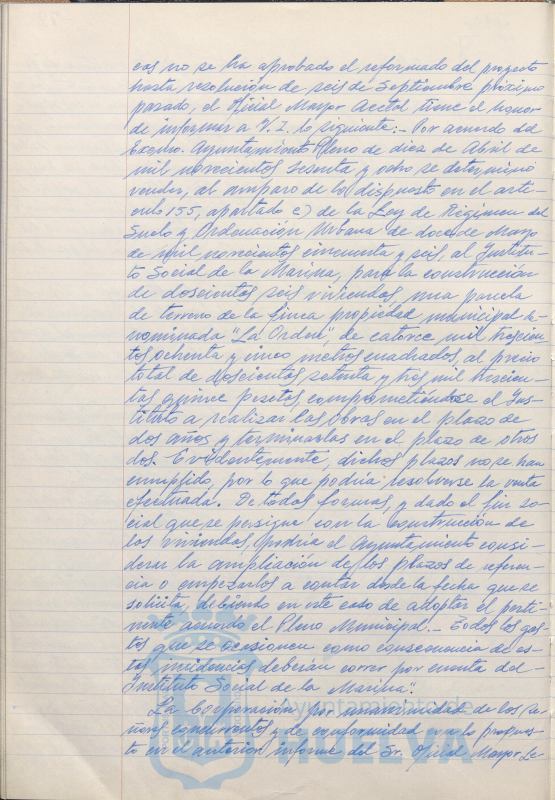 cas no se ha aprobado el reformado del proyecto
hasta resolución de seis de Septiembre próximo
pasado, el Oficial Mayor Acctal tiene el honor
de informar a V. I. lo siguiente:- Por acuerdo del
Excmo. Ayuntamiento Pleno de diez de Abril de
mil novecientos sesenta y ocho se determinó
vender, al amparo de lo dispuesto en el artí-
culo 155, apartado c) de la Ley de Régimen del
Suelo y Ordenación Urbana de doce de Mayo
de mil novecientos cincuenta y seis, al Institu-
to Social de la Marina, para la construcción
de doscientas seis viviendas, una parcela
de terreno de la finca propiedad municipal de-
nominada "La Orden", de catorce mil trescien-
tos ochenta y cinco metros cuadrados, al precio
total de doscientas setenta y tres mil trescien-
tas quince pesetas, comprometiéndose el Ins-
tituto a realizar las obras en el plazo de
dos años y terminarlas en el plazo de otros
dos. Evidentemente, dichos plazos no se han
cumplido, por lo que podría resolverse la venta
efectuada. De todas formas, y dado el fin so-
cial que se persigue con la construcción de
las viviendas, podría el Ayuntamiento consi-
derar la ampliación de los plazos de referen-
cia o empezarlos a contar desde la fecha que se
solicita, debiendo en este caso de adoptar el perti-
nente acuerdo el Pleno Municipal.- Todos los gas-
tos que se ocasionen como consecuencia de es-
tas incidencias deberían correr por cuenta del
Instituto Social de la Marina".
La Corporación por unanimidad de los Se-
ñores concurrentes y de conformidad con lo propues-
to en el anterior informe del Sr. Oficial Mayor Le-
Ayuntamiento de
HUELVA